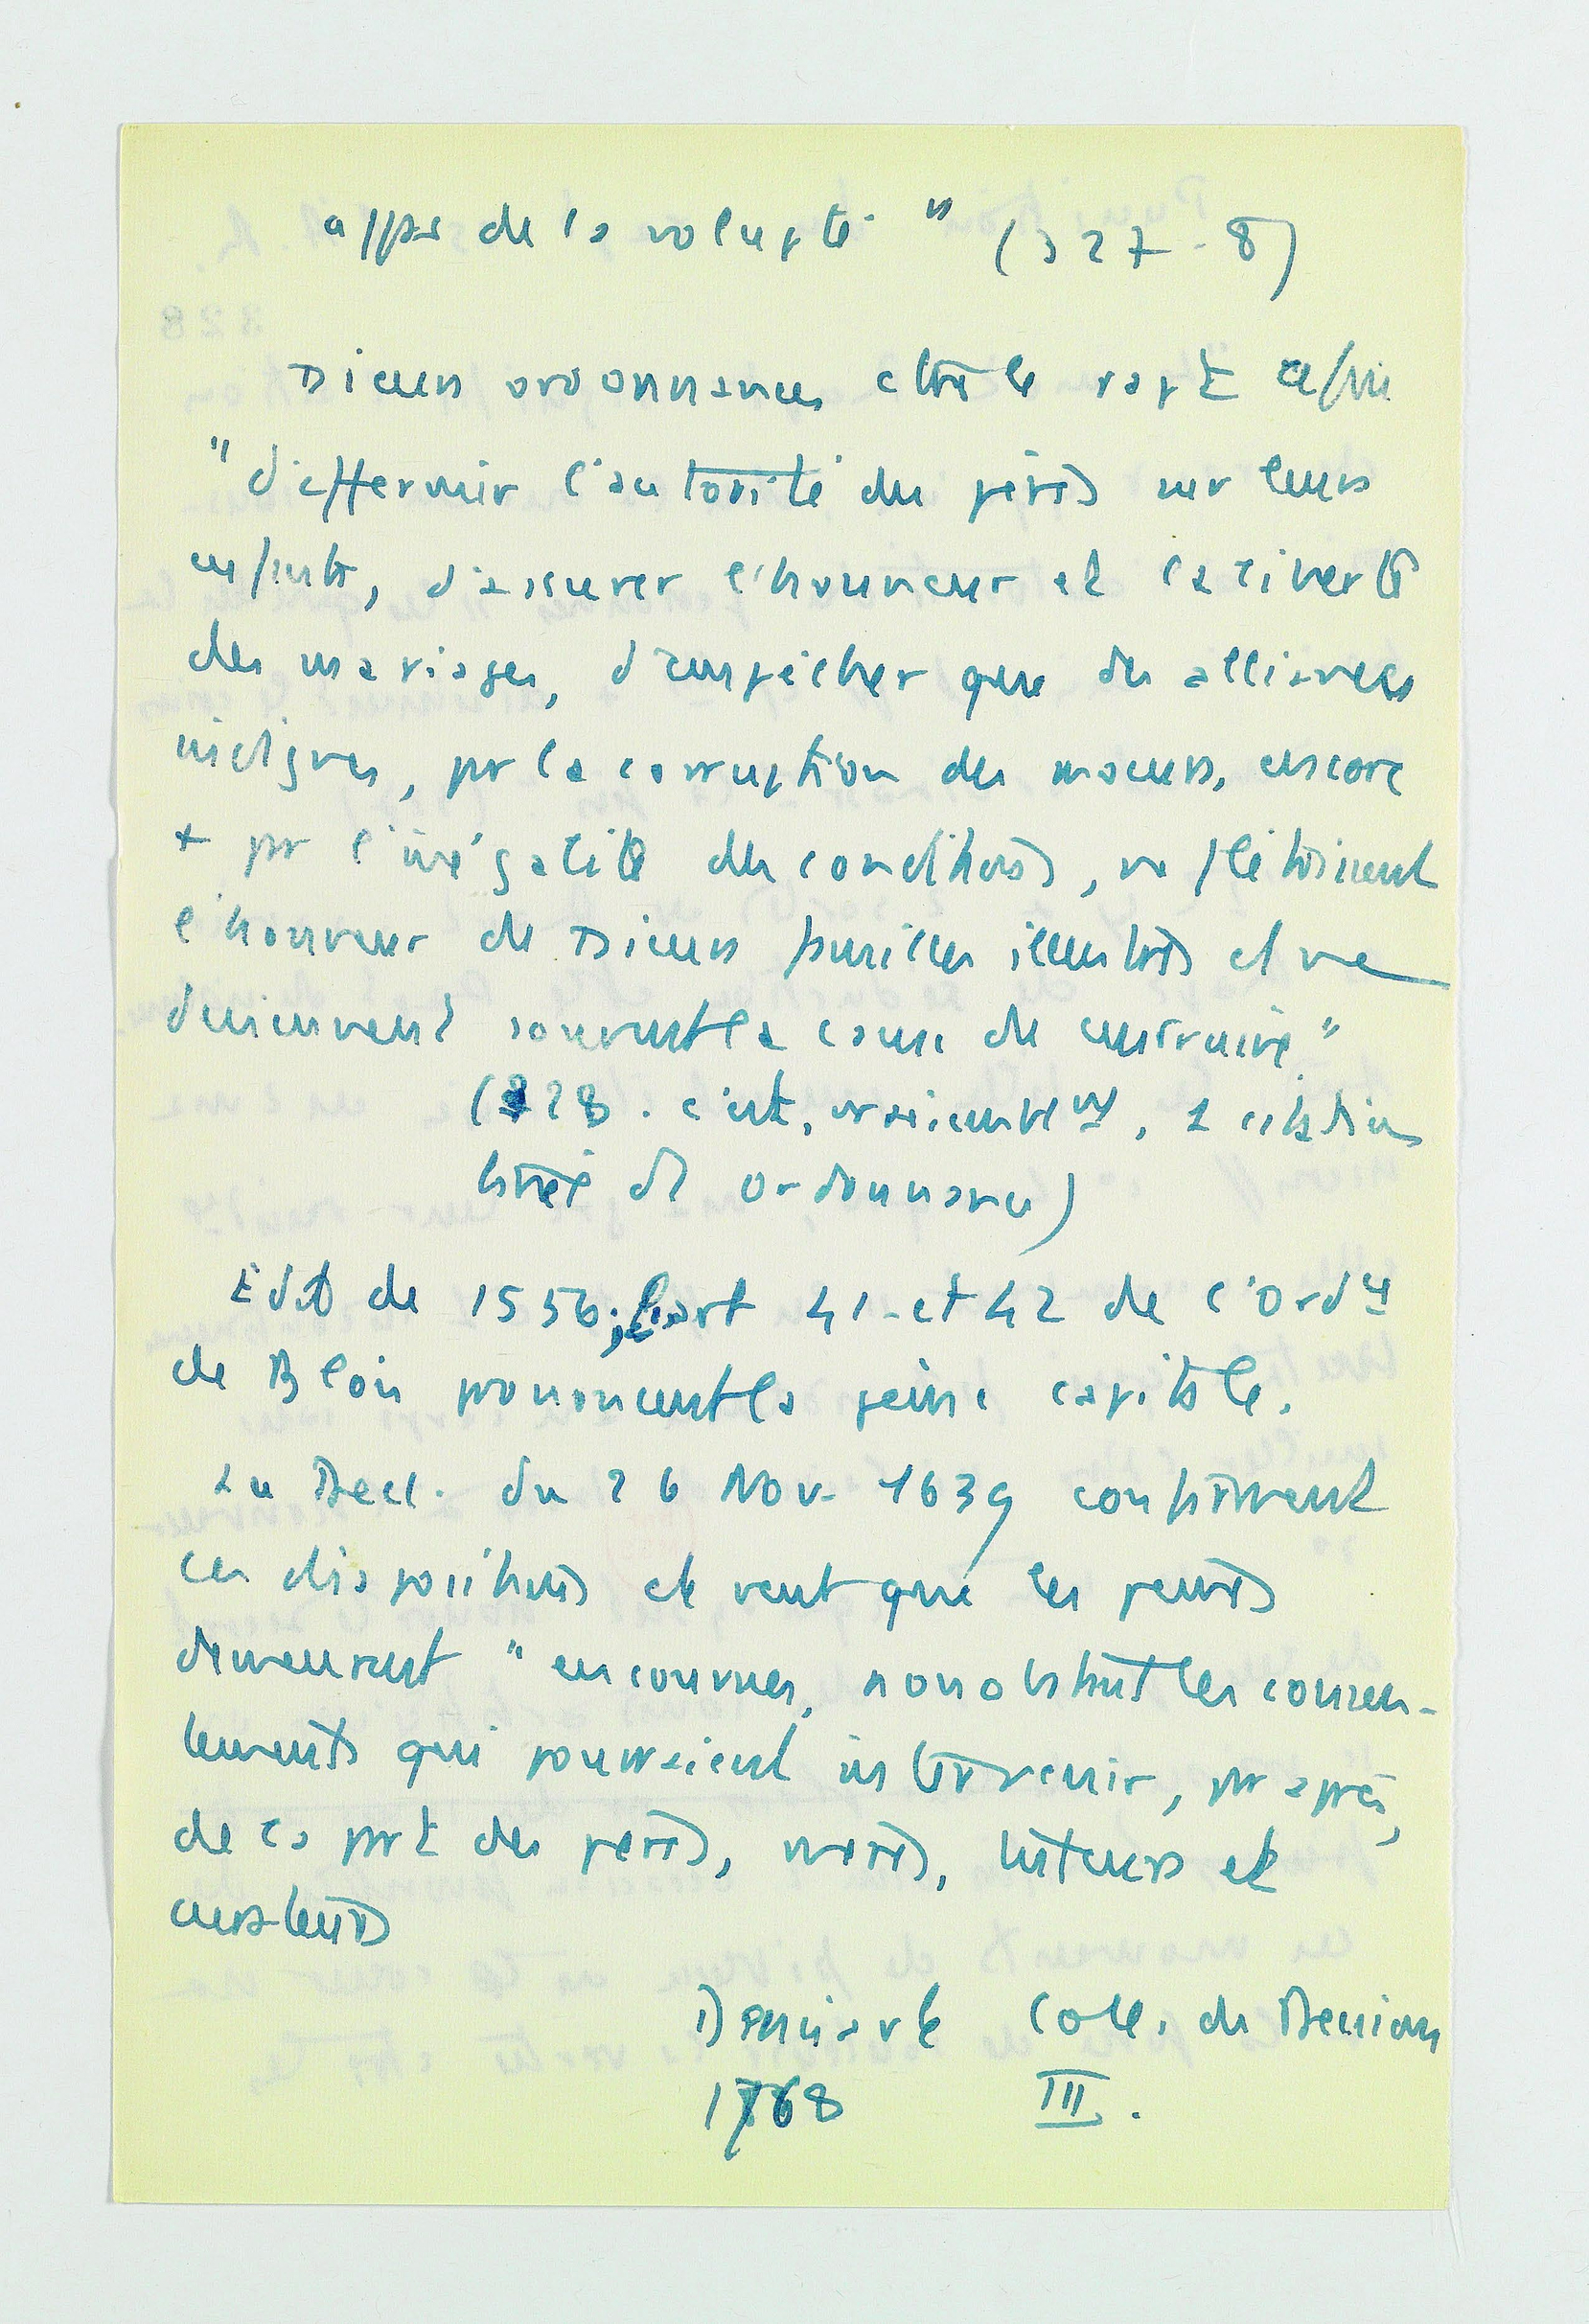 appas de la volupté " (327-8)
Dieurs ordonnances ctre le rapt afin
"d'affermir l'autorité des pères sur leurs
enfants, d'assurer l'honneur et la liberté
des mariages, d'empêcher que des alliances
indignes, par la corruption des moeurs, encore
+ par l'inégalité des conditions, ne flétrissent
l'honneur de Dieurs familles illustres et ne
deviennent souvent la cause de leur ruine"
(328. c'est, vraisemblemt, 1 citation
tirée d' ordonnance)
Edit de 1556; les art 41 et 42 de l'Ordce
de Blois prononcent la peine capitale.
La Decl. du 26 Nov. 1639 confirment
ces dispositions et veut que les peines
demeurent "encourues, nonobstant les consen-
tements qui pourraient intervenir, par après,
de la part des pères, mères, tuteurs et
curateurs
Denisart Coll. de Decisions
1768 III.